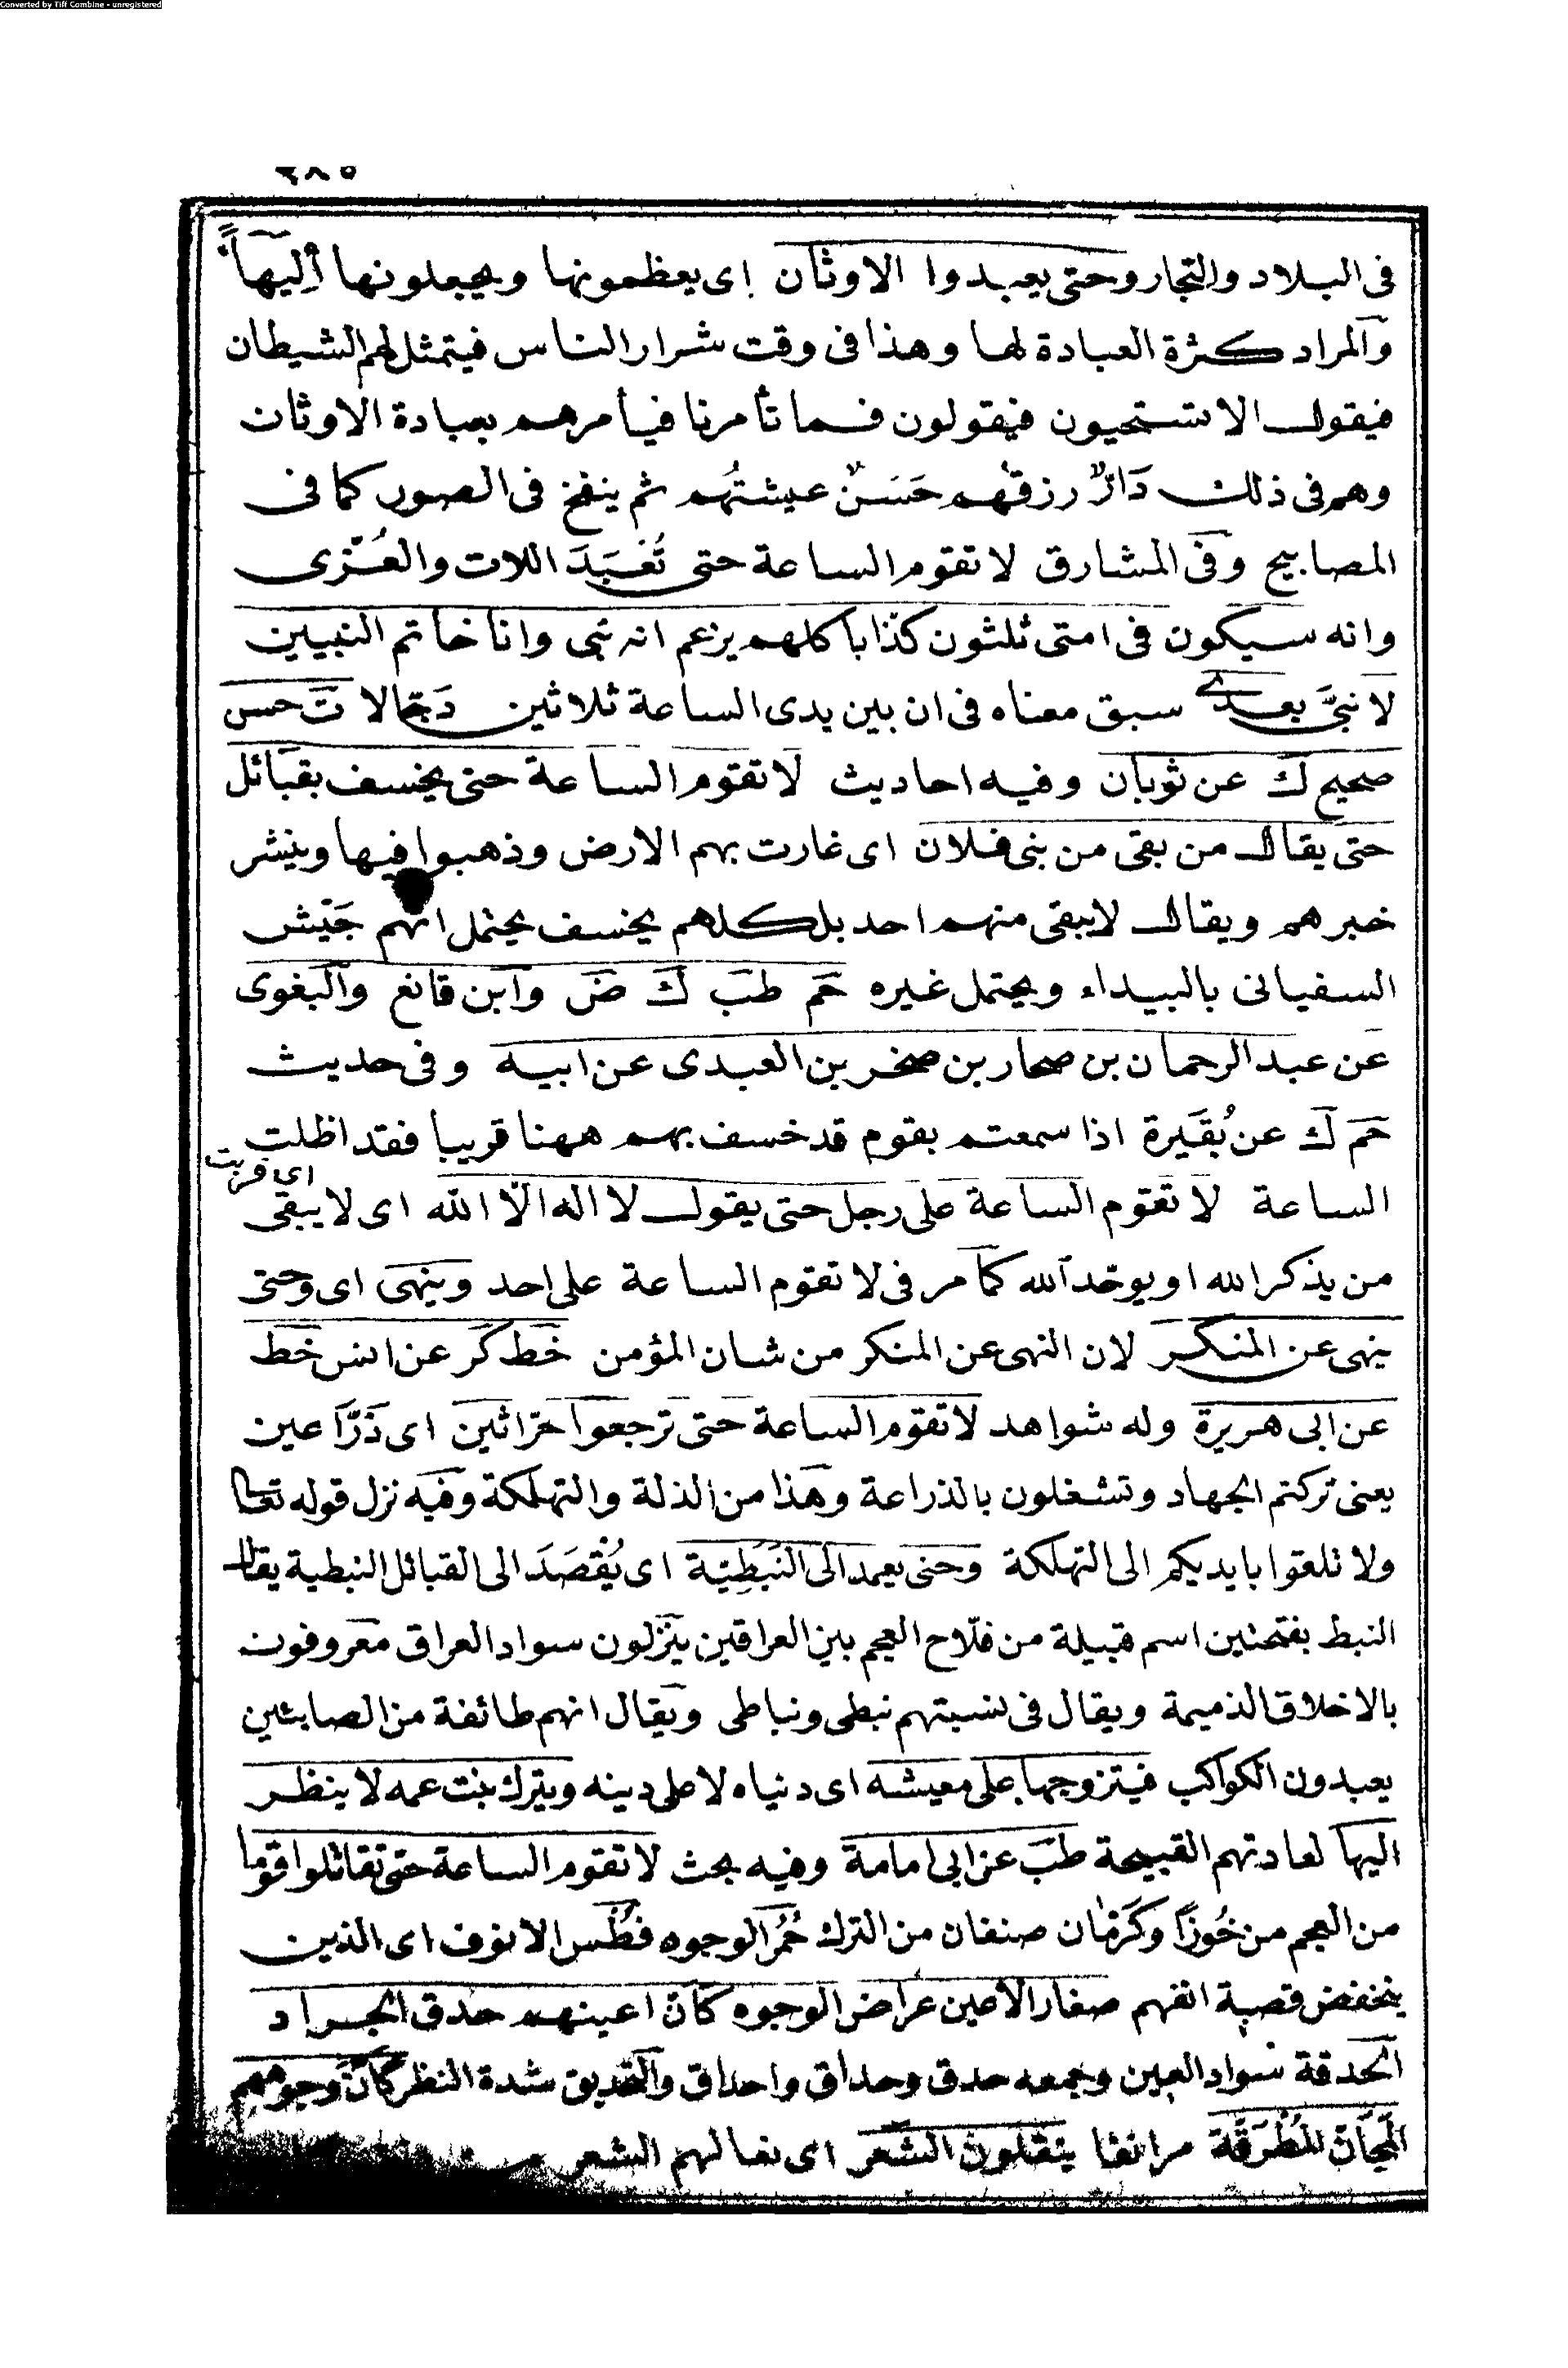 Converted by Tiff Combine - unregistered
٢٨٥
فى البلاد والتجار وحتى يعبدوا الاوثان اى يعظمونها ويجعلونها أليهاً
والمراد كثرة العبادة لها وهذا فى وقت شرار الناس فيتمثل لهم الشيطان
فيقول الا تستحيون فيقولون فما تأمرنا فيأمرهم بعبادة الاوثان
وهم فى ذلك دَارٌّ رزقهم حَسَنٌ عيشتُهم ثم ينفخ فى الصور كما فى
المصابيح وفى المشارق لا تقوم الساعة حتى تُعْبَدَ اللات والعُزّى
وانه سيكون فى امتى ثلثون كذّابا كلهم يزعم انه نبى وانا خاتم النبيين
لا نبىَّ بعدى سبق معناه فى ان بين يدى الساعة ثلاثين دَجّالا ت حسن
صحيح ك عن ثوبان وفيه احاديث لا تقوم الساعة حتى يخسف بقبائل
حتى يقال من بقى من بنى فلان اى غارت بهم الارض وذهبوا فيها وينشر
خبرهم ويقال لا يبقى منهم احد بل كلهم يخسف يحتمل انهم جَيْش
السفيانى بالبيداء ويحتمل غيره حم طب ك ض وابن قانع والبغوى
عن عبد الرحمان بن صحار بن صخر بن العبدى عن ابيه وفى حديث
حم ك عن بُقَيرة اذا سمعتم بقوم قد خسف بهم ههنا قريبا فقد اظلت
اى قربت
الساعة لا تقوم الساعة على رجل حتى يقول لا اله الّا الله اى لا يبقى
من يذكر الله او يوحّد الله كما مر فى لا تقوم الساعة على احد وينهى اى وحتى
ينهى عن المنكر لان النهى عن المنكر من شان المؤمن خط كر عن انس خط
عن ابى هريرة وله شواهد لا تقوم الساعة حتى ترجعوا حرّاثين اى ذَرّاعين
يعنى تركتم الجهاد وتشغلون بالذراعة وهذا من الذلة والتهلكة وفيه نزل قوله تعا
ولا تلقوا بايديكم الى التهلكة وحتى يعمد الى النَبَطِيّة اى يُقْصَدَ الى القبائل النبطية يقال
النبط بفتحتين اسم قبيلة من فلّاح العجم بين العراقين ينزلون سواد العراق معروفون
بالاخلاق الذميمة ويقال فى نسبتهم نبطى ونباطى ويقال انهم طائفة من الصابئين
يعبدون الكواكب فيتزوجها على معيشه اى دنياه لا على دينه ويترك بنت عمه لا ينظر
اليها لعادتهم القبيحة طب عن ابى امامة وفيه بحث لا تقوم الساعة حتى تقاتلوا قوما
من العجم من خُوزاً وكَرمان صنفان من الترك حُمْرَ الوجوه فُطْس الانوف اى الذين
ينخفض قصبة انفهم صغار الاعين عراض الوجوه كأنّ اعينهم حدق الجراد
الحدقة سواد العين وجمعه حدق وحداق واحداق والتحديق شدة النظر كأنّ وجوههم
المَجَانّ المُطْرَقَة مر انفا ينتعلون الشعَر اى نعالهم الشعر